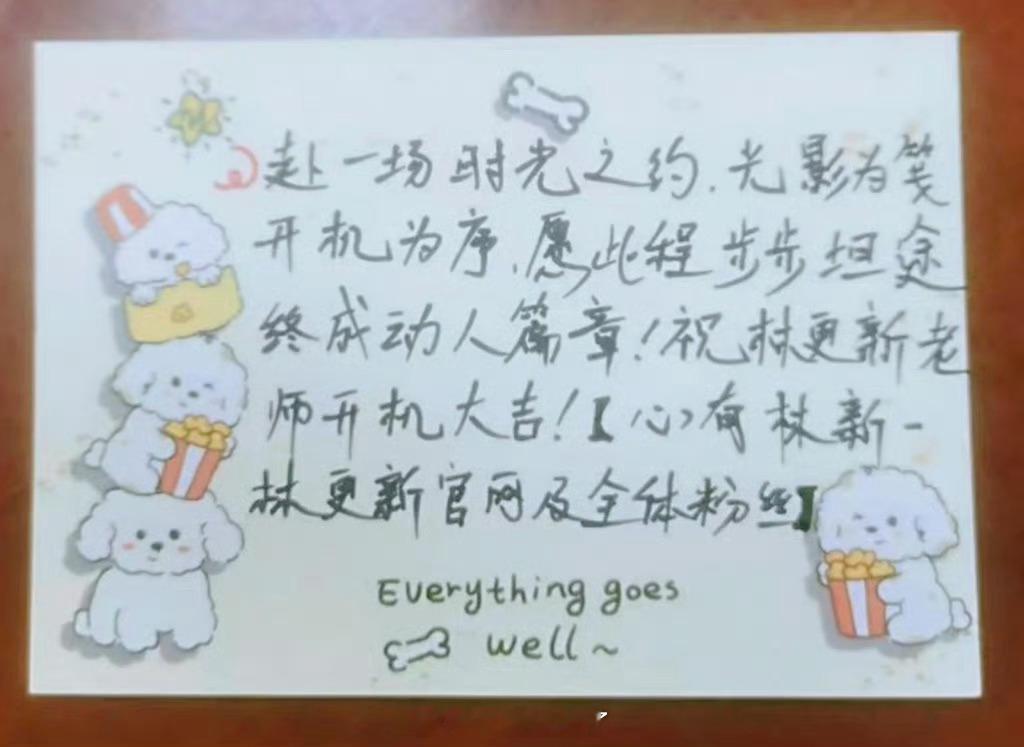 赴一场时光之约,光影为笺
开机为序,愿此程步步坦途
终成动人篇章!祝林更新老
师开机大吉!【心有林新-
林更新官网及全体粉丝】
Everything goes
well~